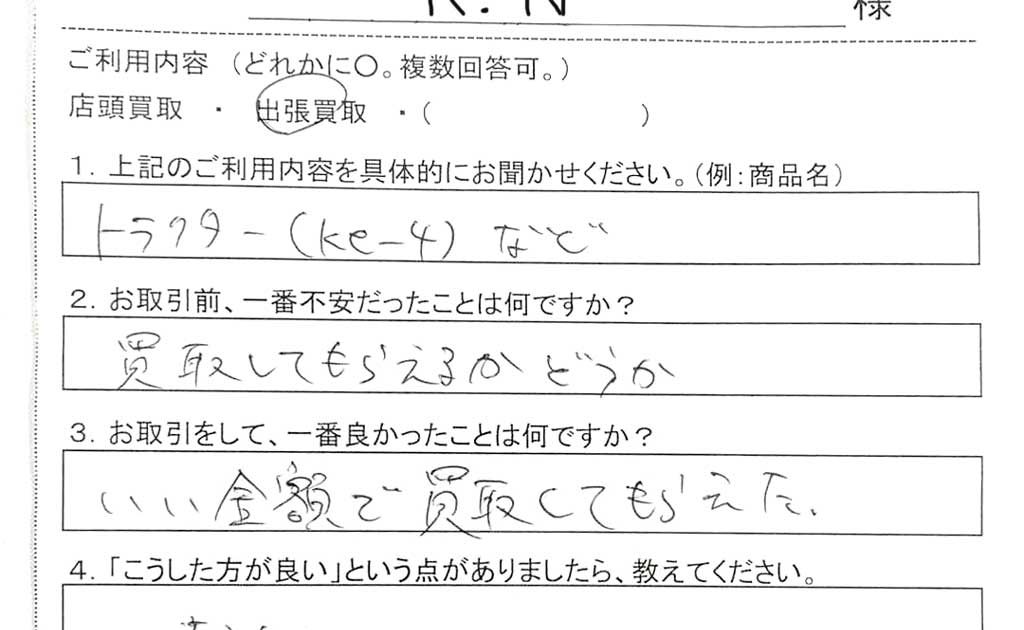 K.N 様
ご利用内容 (どれかに〇。複数回答可。)
店頭買取 ・ 出張買取 ・( )
1. 上記のご利用内容を具体的にお聞かせください。(例:商品名)
トラクター(ke-4) など
2. お取引前、一番不安だったことは何ですか?
買取してもらえるかどうか
3. お取引をして、一番良かったことは何ですか?
いい金額で買取してもらえた.
4. 「こうした方が良い」という点がありましたら、教えてください。